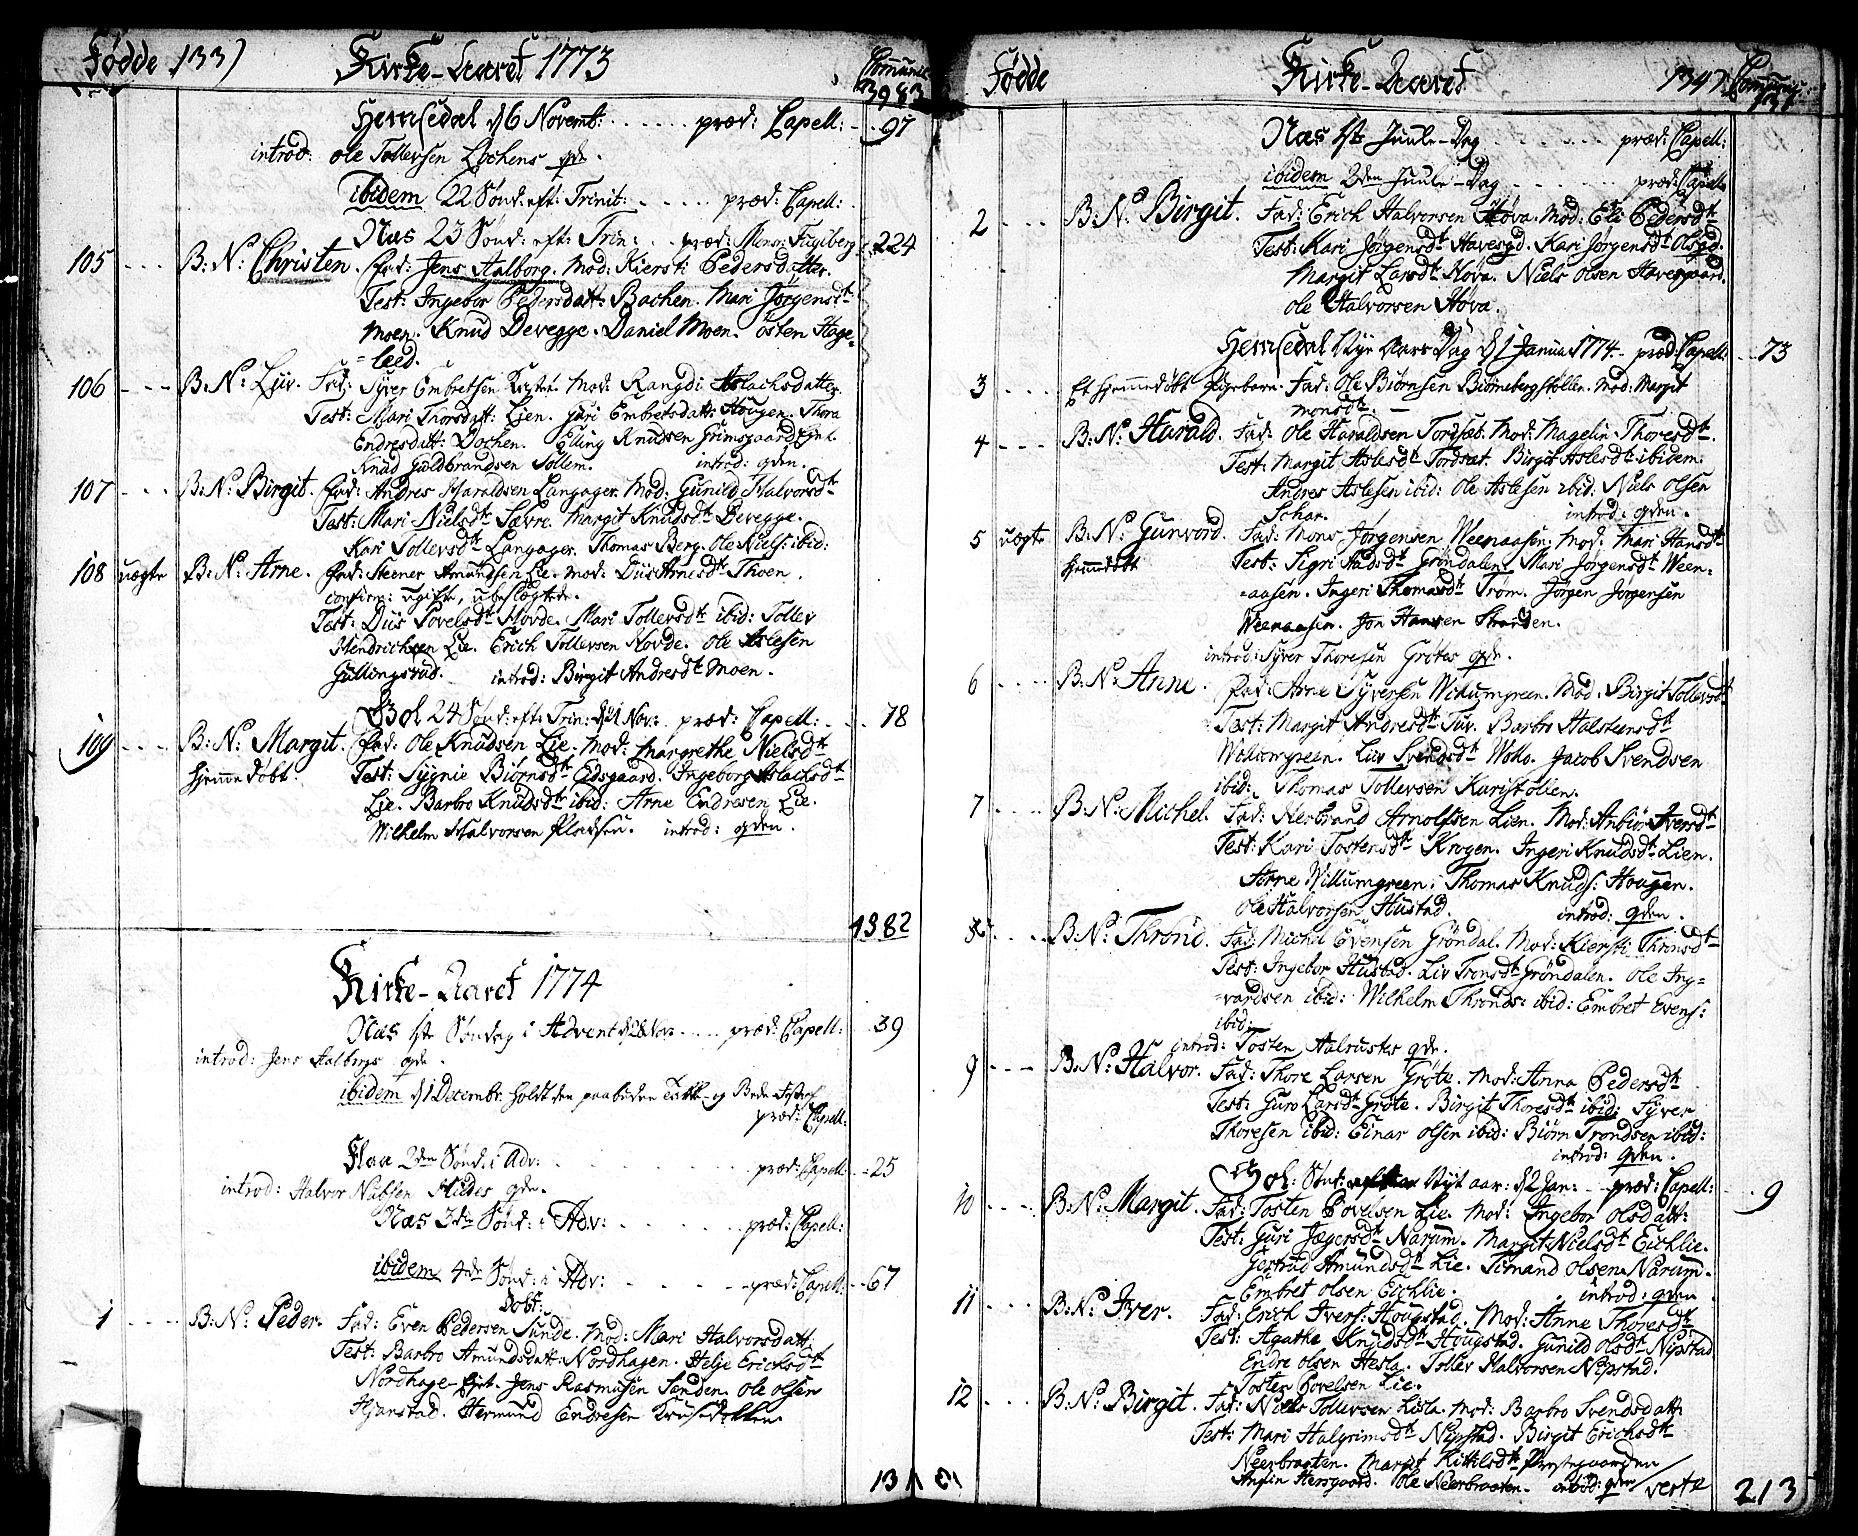 Fødde 133) Kirke-Aaret 1773 Communic:
3983
Hemsedal d 6 Novemb: præd: Capell: 97
introd: Ole Tollefsen Lochens qde.
ibidem 22 Sønd: eft: Trinit: præd: Capell:
Nas 23 Sønd: eft: Trin: præd: Monsr: 224
105 B: N: Christen. Fad: Jens Aalborg. Mod: Kiersti Pedersdatter.
Test: Ingebor Pedersdatt: Bachen. Mari Jørgensdt:
Moen. Knud Devegge. Daniel Moen. östen Hage=
=leed.
106 B: N: Liv. Fad: Syver Embretsen Mod: Rangdi Aslachsdatter
Test: Mari Thorsdatt: Lien. Guri Embretsdatt: Hougen. Thora
Endresdatt: Lochen. Elling Knudsen Grimsgaard
Knud Guldbrandsen Tollem. introd: qden.
107 B: N: Birgit. Fad: Andres Haraldsen Langager. Mod: Gunild Halvorsdt:
Test: Mari Nielsdt: Sævre. Margit Knudsdt: Devegge.
Kari Tollevsdt: Langager. Thomas Berg. Ole Niels: ibid:
108 uægte B: N: Arne. Fad: Steener Amundsen Lie. Mod: Diis Arnesdt: Thoen.
confirm: ugifte, ubeslægtede.
Test: Diis Povelsdt: Hovde. Mari Tollevsdt: ibid: Tollev
Hendrichsen Lie. Erich Tollevsen Hovde. Ole Aslesen
Gullingsrud. introd: Birgit Andresdt: Moen.
Gol 24 Sønd: eft: Trin: d 21 Nov: præd: Capell: 78
109 B: N: Margit. Fad: Ole Knudsen Lie. Mod: Margrethe Nielsdt:
hjemmedøbt. Test: Sygnie Biørnsdt: Eidsgaard. Ingeborg Aslachsdt:
Lie. Barbro Knudsdt: ibid: Arne Endresen Lie.
Wilhelm Halvorsen Pladsen. introd: qden.
4382
Kirke-Aaret 1774
Nas 1ste Søndag i Advent d 28 Nov: præd: Capell: 39
introd: Jens Aalborgs qde.
ibidem d 1 Decembr: holdt den paabudne Takke- og Bede Fest
præd: Capell:
Flaa 2den Sønd: i Adv: præd: Capell: 25
introd: Halvor Nubsen qde.
Nas 3die Sønd: i Adv: præd: Capell:
ibidem 4de Sønd: i Adv: præd: Capell: 67
døbt:
1 B: N: Peder. Fad: Even Pedersen Sunde. Mod: Mari Halvorsdatt:
Test: Barbro Amundsdatt: Nordhagen. Helje Erichsdt:
Nordhage Jens Rasmusen Sanden. Ole Olsen
Hjanstad. Hermund Endresen
131
Fødde Kirke-Aaret 134) Communic:
131
Nas 1ste Juule-Dag præd: Capell:
ibidem 2den Juule-Dag præd: Capell:
2 B: N: Birgit. Fad: Erich Halvorsen Hova. Mod: Eli Pedersdt:
Test: Kari Jørgensdt: Havesgd. Kari Jørgensdt: Olsgd.
Margit Larsdt: Hova. Niels Olsen Havesgaard.
Ole Halvorsen Hova.
Hemsedal Nye Aars Dag d 1 Janua: 1774 præd: Capell: 73
3 Et hjemmedøbt Pigebarn. Fad: Ole Biørnsen Biørnebergstøllen. Mod: Margit
Monsdt:
4 B: N: Harald. Fad: Ole Haraldsen Tordsæt. Mod: Magelin Thoresdt:
Test: Margit Aslesdt: Tordsæt. Birgit Aslesdt: ibidem.
Andres Aslesen ibid: Ole Aslesen ibid: Niels Olsen
Schar. introd: qden.
5 uægte B: N: Gunvord. Fad: Mons Jørgensen Weenaasen. Mod: Mari Hansdt:
hjemmedøbt Test: Sigri Aadsdt: Gröndalen. Mari Jørgensdt: Ween=
=aasen. Ingeri Thomasdt: Trøm. Jørgen Jørgensen
Weenaasen. Jon Hansen
introd: Syver Thoresen Grötes qde.
6 B: N: Anne. Fad: Arne Syversen Wikumgreen. Mod: Birgit Tollevsdt:
Test: Margit Andresdt: Tuv. Barbro Halsteensdt:
Wikumgreen. Liv Svendsdt: Jacob Svendsen
ibid: Thomas Tollevsen Karistölien.
7 B: N: Michel. Fad: Herbrand Arnolfsen Lien. Mod: Anbiør Iversdt:
Test: Kari Tostensdt: Krogen. Ingeri Knudsdt: Lien.
Arne Wikumgreen. Thomas Knuds: Hougen.
Ole Halvorsen Hustad. introd: qden.
8 B: N: Thrond. Fad: Michel Evensen Gröndal. Mod: Kiersti Thronsdt:
Test: Ingebor Hustad. Liv Tronsdt: Gröndalen. Ole Ing=
=vardsen ibid: Wilhelm Thronds: ibid: Embret Evens:
ibid:
introd: Tosten qde.
9 B: N: Halvor. Fad: Thore Larsen Gröte. Mod: Anna Pedersdt:
Test: Guro Larsdt: Gröte. Birgit Thoresdt: ibid: Syver
Thoresen ibid: Einar Olsen ibid: Biørn Trondsen ibid:
introd: qden.
Gol: Sønd: efter Nyt aar: d 2 Jan: præd: Capell: 9
10 B: N: Margit. Fad: Tosten Povelsen Lie. Mod: Ingebor Olsdatt:
Test: Guri Jægersdt: Narum. Margit Nielsdt: Eichlie.
Gertrud Amundsdt: Lie. Simand Olsen Narum.
Embret Olsen Eichlie. introd: qden
11 B: N: Iver. Fad: Erich Ivers: Hougstad. Mod: Anne Thoresdt:
Test: Agatha Knudsdt: Hougstad. Gunild Olsdt: Nipstad
Endre Olsen Hesla. Tollev Halvorsen Nipstad.
Tosten Povelsen Lie.
12 B: N: Birgit. Fad: Niels Tollevsen Lisla. Mod: Barbro Svendsdatt:
Test: Mari Halgrimsdt: Nipstad. Birgit Erichsdt:
Neerbraaten. Margit Kittilsdt: Præstegaarden
Anfin Hersgaard. Ole Neerbraaten. introd: qden verte
213